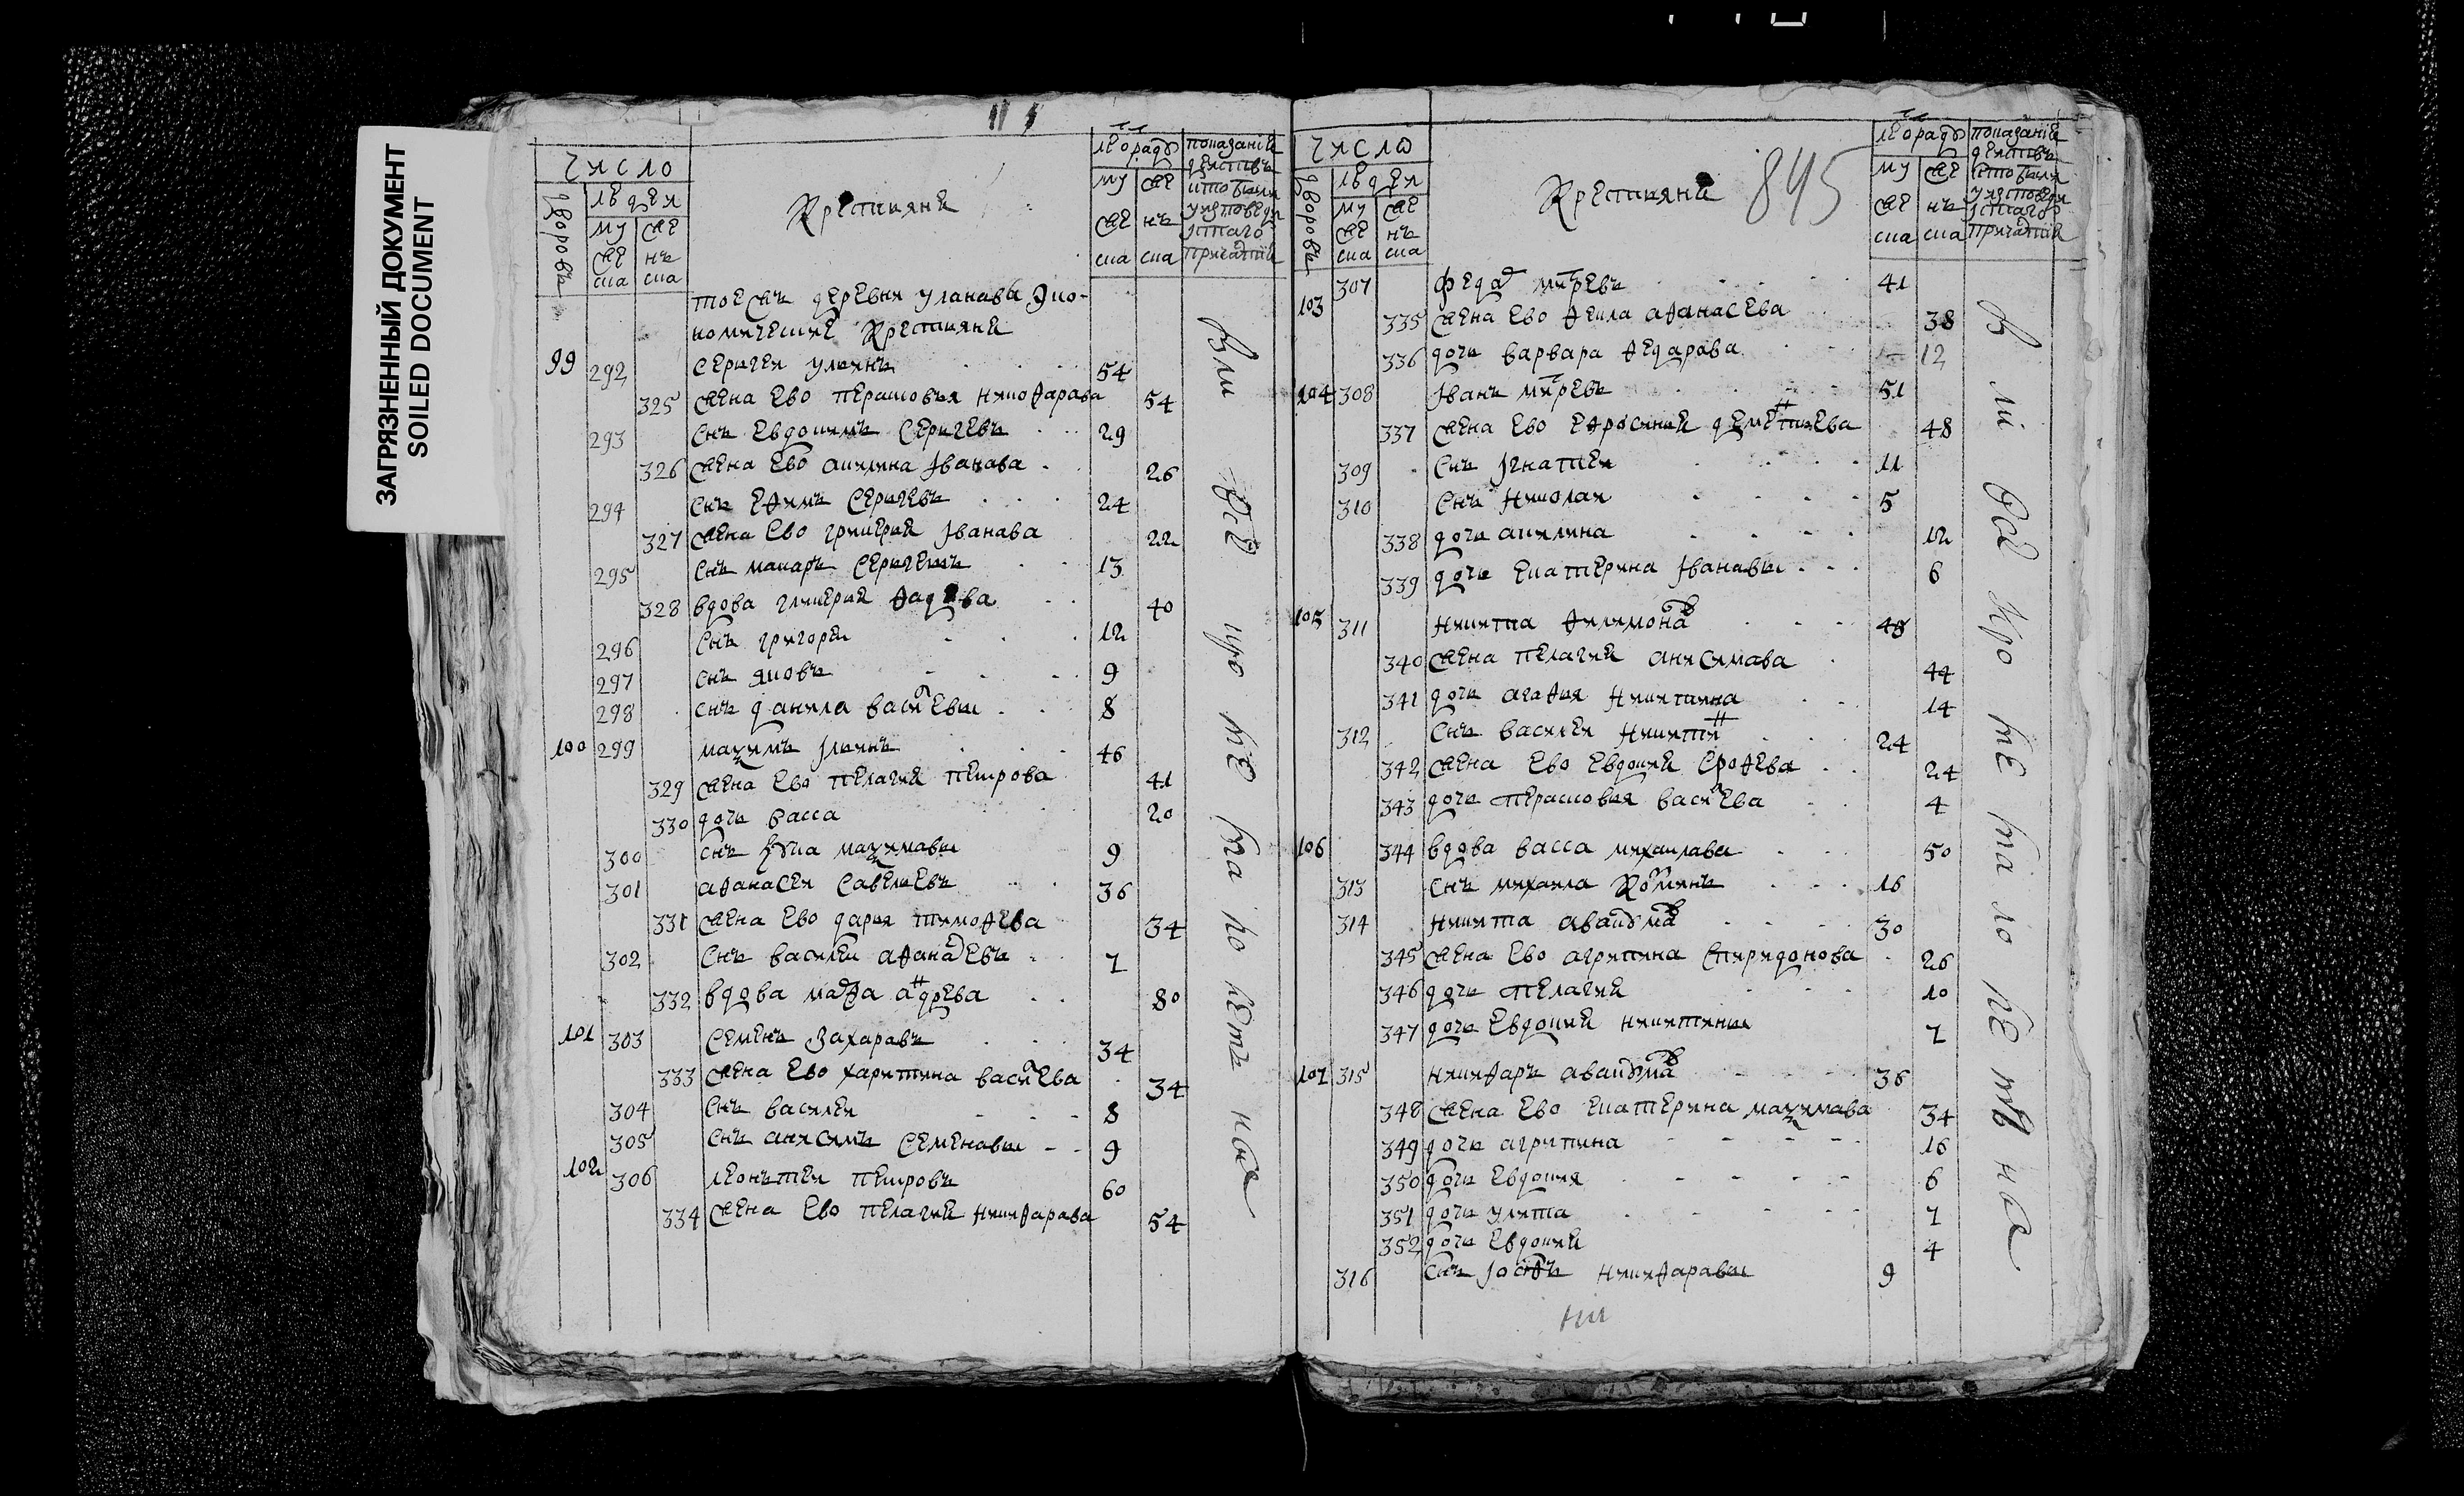 ЗАГРЯЗНЕННЫЙ ДОКУМЕНТ
SOILED DOCUMENT
число
дворовъ
людеи
му же ска
же нъ ска
крестияне
ле от раду
му же ска
же нъ ска
показание
тоежъ деревни уланавы Эко-
номические крестияне
99 292 Сергеи ульянъ 54
325 жена ево перасковья никофарава 54
293 снъ Евдокимъ Сергевъ 29
326 жена ево акилина Iванава 26
294 снъ Ефимъ Сергевъ 24
327 жена ево гликерия Iванава 22
295 снъ макаръ Сергевъ 13
328 вдова гликерия фадева 40
296 снъ григореи 12
297 снъ яковъ 9
298 снъ данила василевы 8
100 299 максимъ Iльинъ 46
329 жена ево пелагия петрова 41
330 дочь васса 20
300 снъ максимавы 9
301 афанасеи Савельевъ 36
331 жена ево дарья тимофева 34
302 снъ василеи афанасевъ 7
332 вдова андрева 80
101 303 Семенъ Захаравъ 34
333 жена ево харитина василева 34
304 снъ василеи 8
305 снъ анисимъ Семенавы 9
102 306 леонътеи петровъ 60
334 жена ево пелагия никифарава 54
число
дворовъ
людеи
му же ска
же нъ ска
крестияне
845
ле от раду
му же ска
же нъ ска
показание
103 307 федар 41
335 жена ево фекла афанасева 38
336 дочь варвара федарава 12
104 308 Iванъ 51
337 жена ево ефросиния дементиева 48
309 снъ Iгнатеи 11
310 снъ николаи 5
338 дочь акилина 12
339 дочь екатерина Iванавы 6
105 311 никита филимонав 48
340 жена пелагия анисимава 44
341 дочь агафья никитина 14
312 снъ василеи никитин 24
342 жена ево евдокия ерофева 24
343 дочь перасковья василева 4
106 344 вдова васса михаилава 50
313 снъ михаила 16
314 никита авакумав 30
345 жена ево агрипина спиридонова 26
346 дочь пелагия 10
347 дочь евдокия никитины 7
107 315 никифаръ авакумав 36
348 жена ево екатерина максимава 34
349 дочь агрипина 16
350 дочь евдокия 6
351 дочь улита 7
352 дочь евдокия 4
316 снъ Iосифъ никифаравы 9